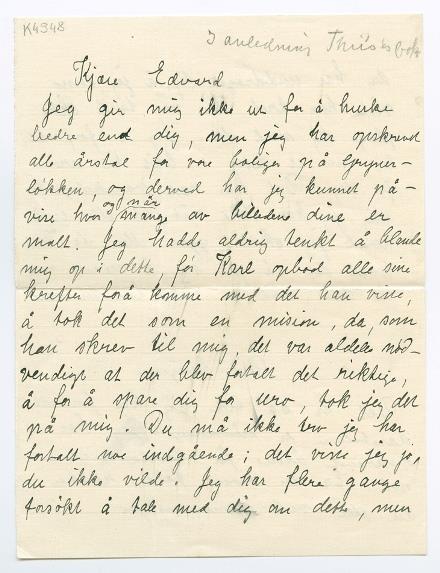 K4948
I anledning Thiis's bok
Kjære Edvard
Jeg gir mig ikke ut for å huske
bedre end dig, men jeg har opskrevet
alle årstal for vore boliger på Gryner-
løkken, og derved har jeg kunnet på-
vise hvor og når mange av billedene dine er
malt. Jeg hadde aldrig tenkt å blande
mig op i dette, før Karl opbød alle sine
krefter forå komme med det han visste,
å tok det som en mision, da, som
han skrev til mig, det var aldeles nød-
vendigt at der blev fortalt det riktige,
å for å spare dig for uro, tok jeg det
på mig. Du må ikke tro jeg har
fortalt noe indgående; det viste jeg jo,
du ikke vilde. Jeg har flere gange
forsøkt å tale med dig om dette, men